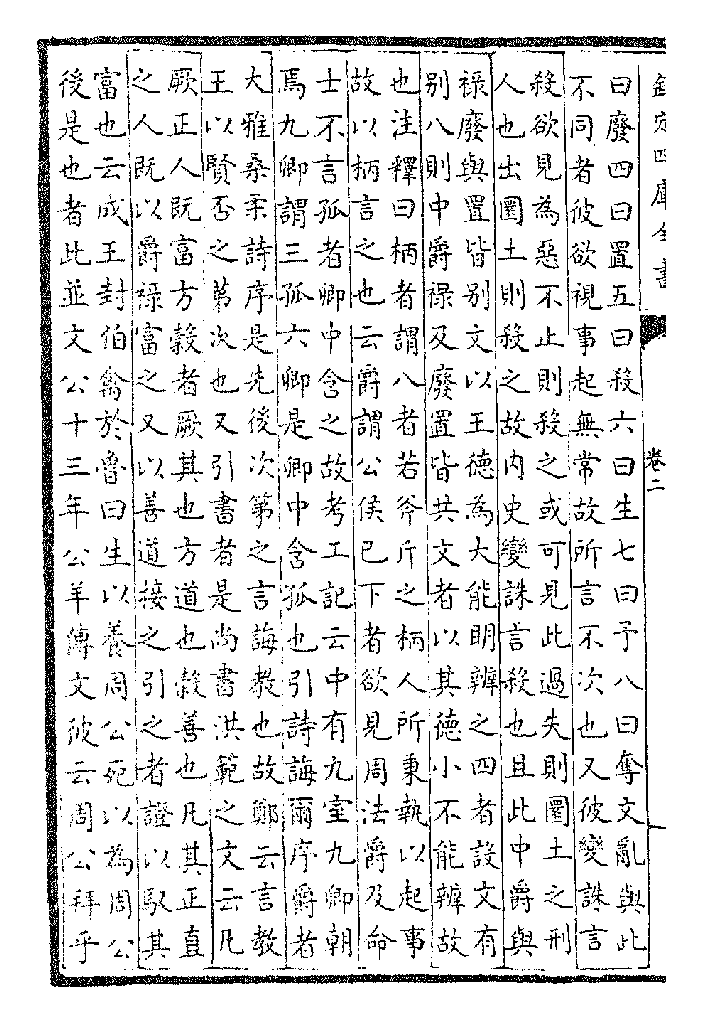 欽定四庫全書
卷二
曰廢四曰置五曰殺六曰生七曰予八曰奪文亂與此
不同者彼欲視事起無常故所言不次也又彼變誅言
殺欲見為惡不止則殺之或可見此過失則圜土之刑
人也出圜土則殺之故内史變誅言殺也且此中爵與
祿廢與置皆别文以王德為大能明辨之四者設文有
别八則中爵祿及廢置皆共文者以其德小不能辨故
也注釋曰柄者謂八者若斧斤之柄人所秉執以起事
故以柄言之也云爵謂公侯已下者欲見周法爵及命
士不言孤者卿中含之故考工記云中有九室九卿朝
焉九卿謂三孤六卿是卿中含孤也引詩誨爾序爵者
大雅桑柔詩序是先後次第之言誨教也故鄭云言教
王以賢否之第次也又引書者是尚書洪範之文云凡
厥正人既富方榖者厥其也方道也榖善也凡其正直
之人既以爵祿富之又以善道接之引之者證以馭其
富也云成王封伯禽於魯曰生以養周公死以為周公
後是也者此並文公十三年公羊傳文彼云周公拜乎